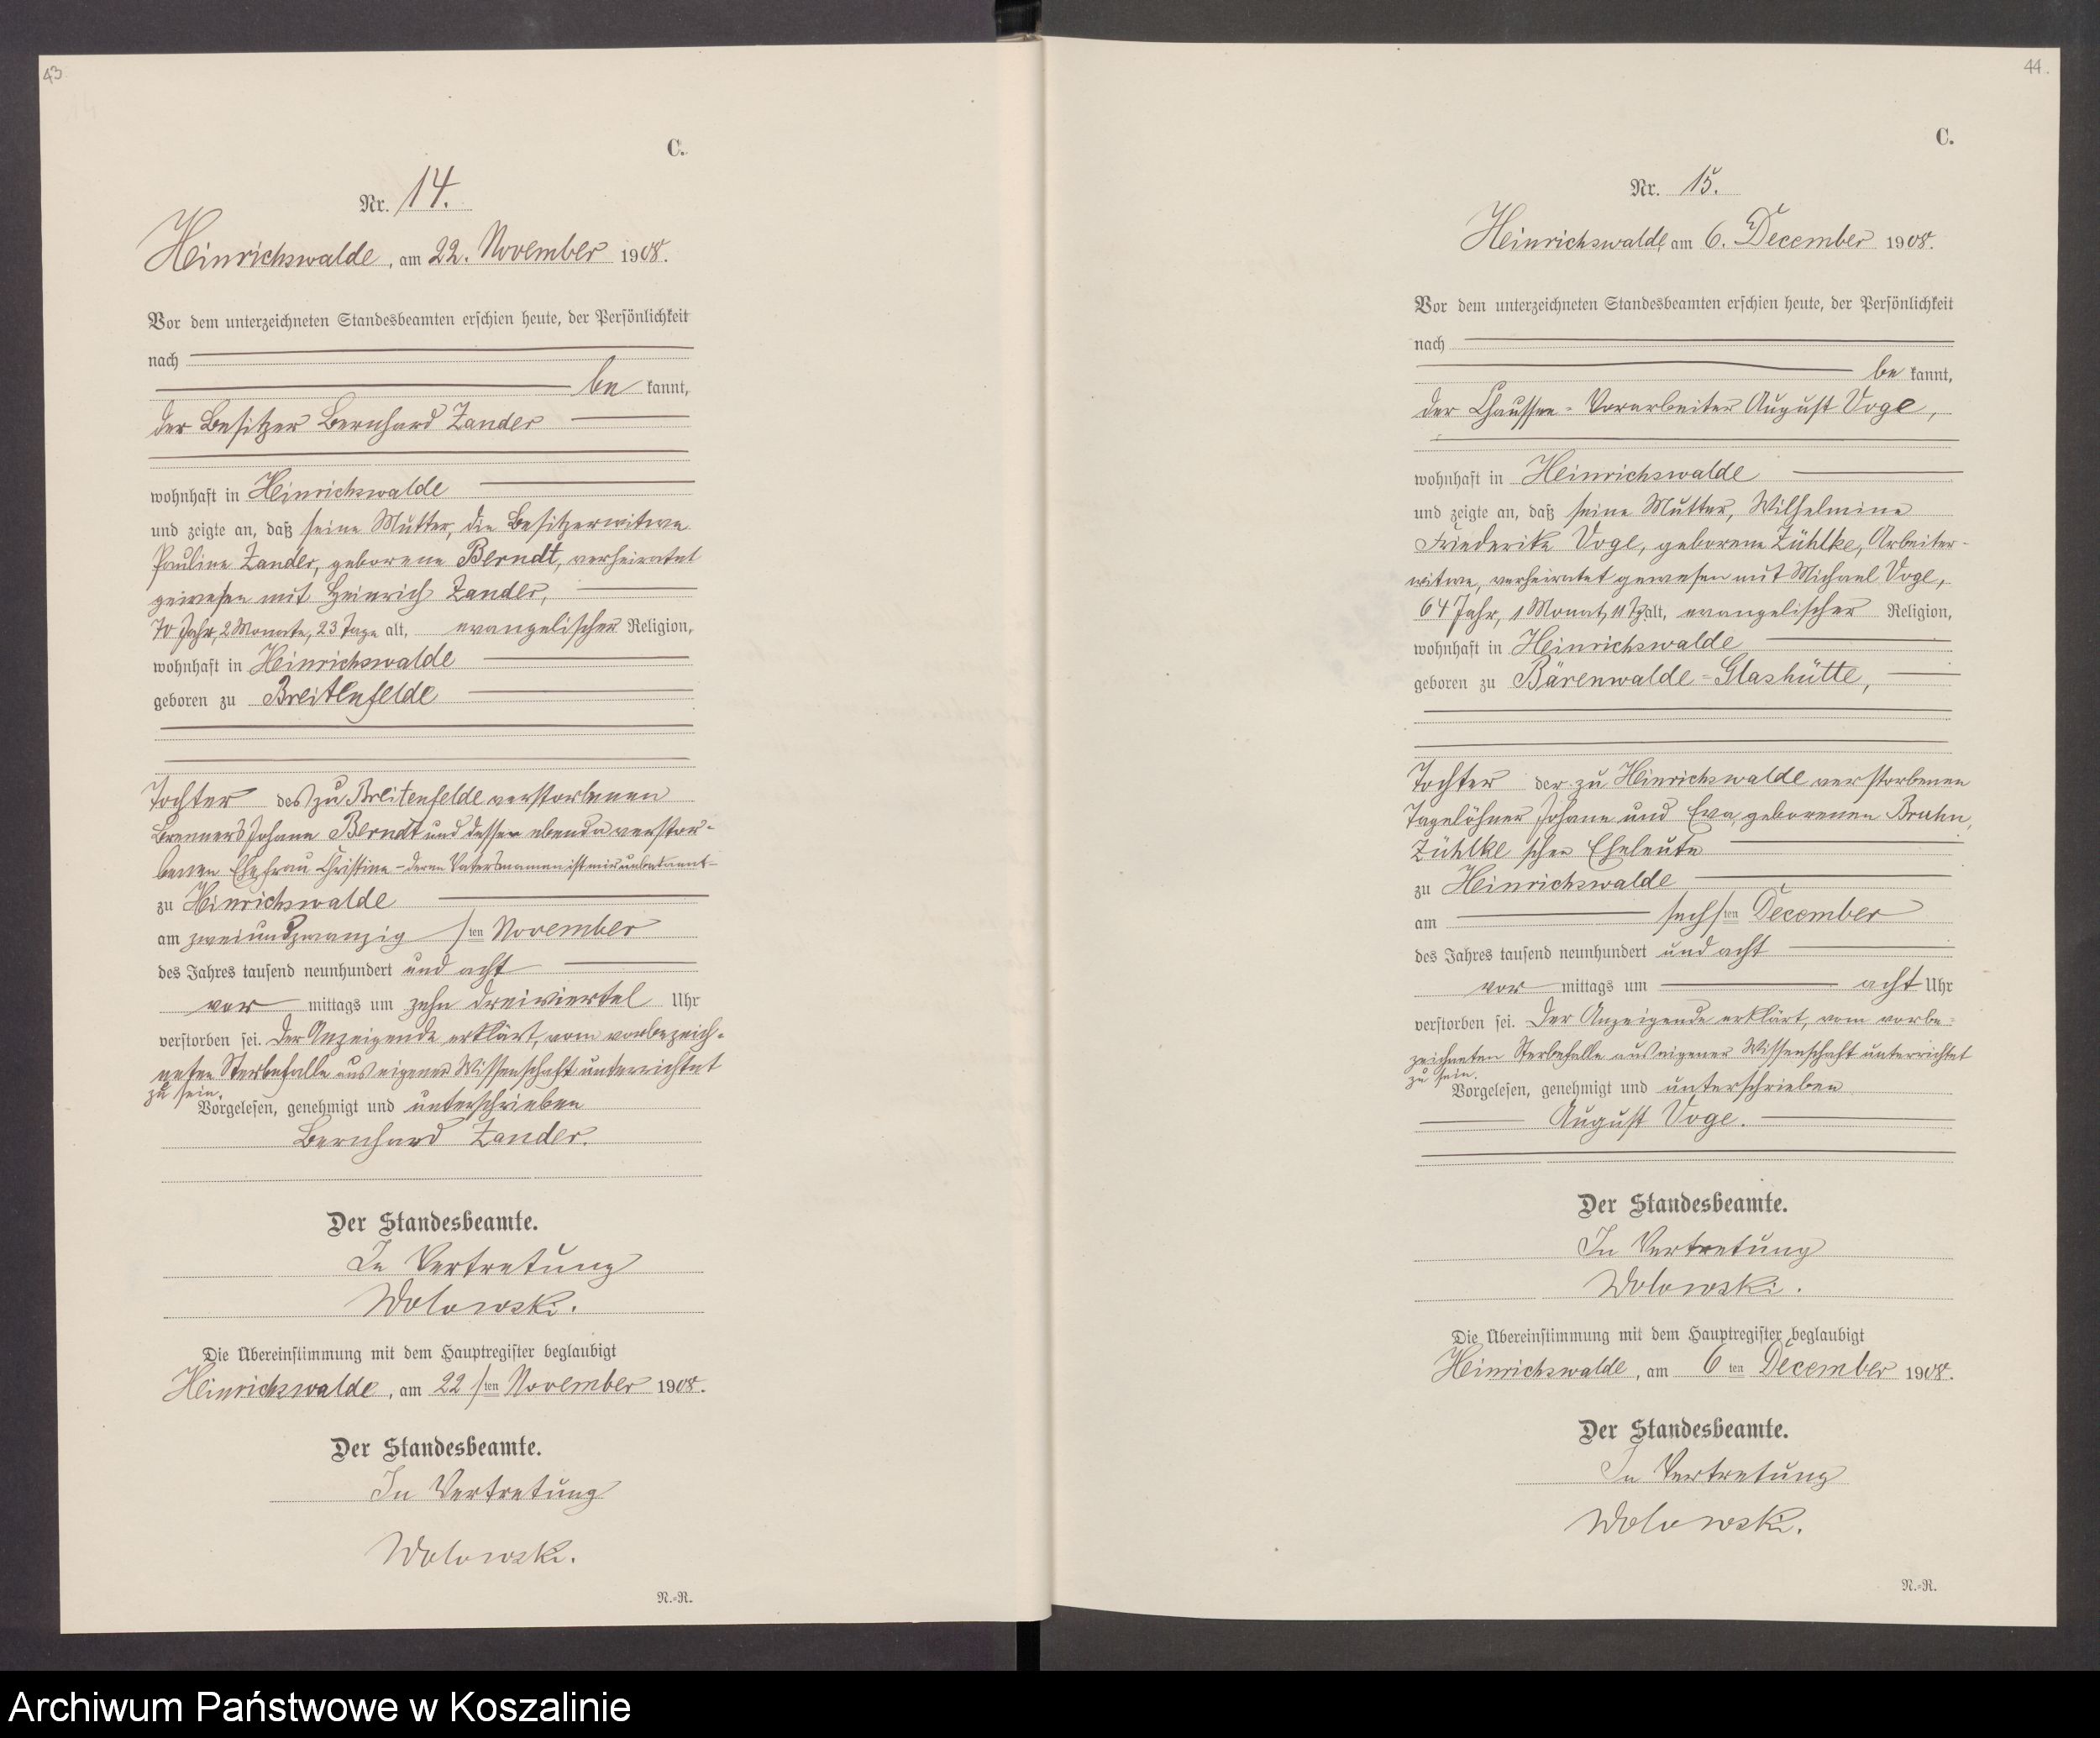 43
C.
Nr. 14.
Heinrichswalde, am 22. November 1908.
Vor dem unterzeichneten Standesbeamten erschien heute, der Persönlichkeit
nach
be kannt,
der Besitzer Bernhard Zander
wohnhaft in Heinrichswalde
und zeigte an, daß seine Mutter, die Besitzerwitwe
Pauline Zander, geborene Berndt, verheiratet
gewesen mit Heinrich Zander,
70 Jahr, 2 Monate, 23 Tage alt, evangelischer Religion,
wohnhaft in Heinrichswalde
geboren zu Breitenfelde
Tochter des zu Breitenfelde verstorbenen
Brenners Johann Berndt und dessen ebenda verstor-
benen Ehefrau Christine - deren Vatersnamen ist mir unbekannt -
zu Heinrichswalde
am zweiundzwanzig sten November
des Jahres tausend neunhundert und acht
vor mittags um zehn dreiviertel Uhr
verstorben sei. Der Anzeigende erklärt, vom vorbezeich-
neten Sterbefalle aus eigener Wissenschaft unterrichtet
zu sein.
Vorgelesen, genehmigt und unterschrieben
Bernhard Zander.
Der Standesbeamte.
In Vertretung
Wolowski.
Die Übereinstimmung mit dem Hauptregister beglaubigt
Heinrichswalde, am 22 sten November 1908.
Der Standesbeamte.
In Vertretung
Wolowski.
N.-R.
44.
C.
Nr. 15.
Heinrichswalde am 6. December 1908.
Vor dem unterzeichneten Standesbeamten erschien heute, der Persönlichkeit
nach
be kannt,
der Chaussee-Vorarbeiter August Voge,
wohnhaft in Heinrichswalde
und zeigte an, daß seine Mutter, Wilhelmine
Friederike Voge, geborene Zühlke, Arbeiter-
witwe, verheiratet gewesen mit Michael Voge,
64 Jahr, 1 Monat, 11 Tg. alt, evangelischer Religion,
wohnhaft in Heinrichswalde
geboren zu Bärenwalde-Glashütte,
Tochter der zu Heinrichswalde verstorbenen
Tagelöhner Johann und Eva, geborenen Bruhn,
Zühlke'schen Eheleute
zu Heinrichswalde
am sechsten December
des Jahres tausend neunhundert und acht
vor mittags um acht Uhr
verstorben sei. Der Anzeigende erklärt, vom vorbe-
zeichneten Sterbefalle aus eigener Wissenschaft unterrichtet
zu sein.
Vorgelesen, genehmigt und unterschrieben
August Voge.
Der Standesbeamte.
In Vertretung
Wolowski.
Die Übereinstimmung mit dem Hauptregister beglaubigt
Heinrichswalde, am 6 ten December 1908.
Der Standesbeamte.
In Vertretung
Wolowski.
N.-R.
Archiwum Państwowe w Koszalinie